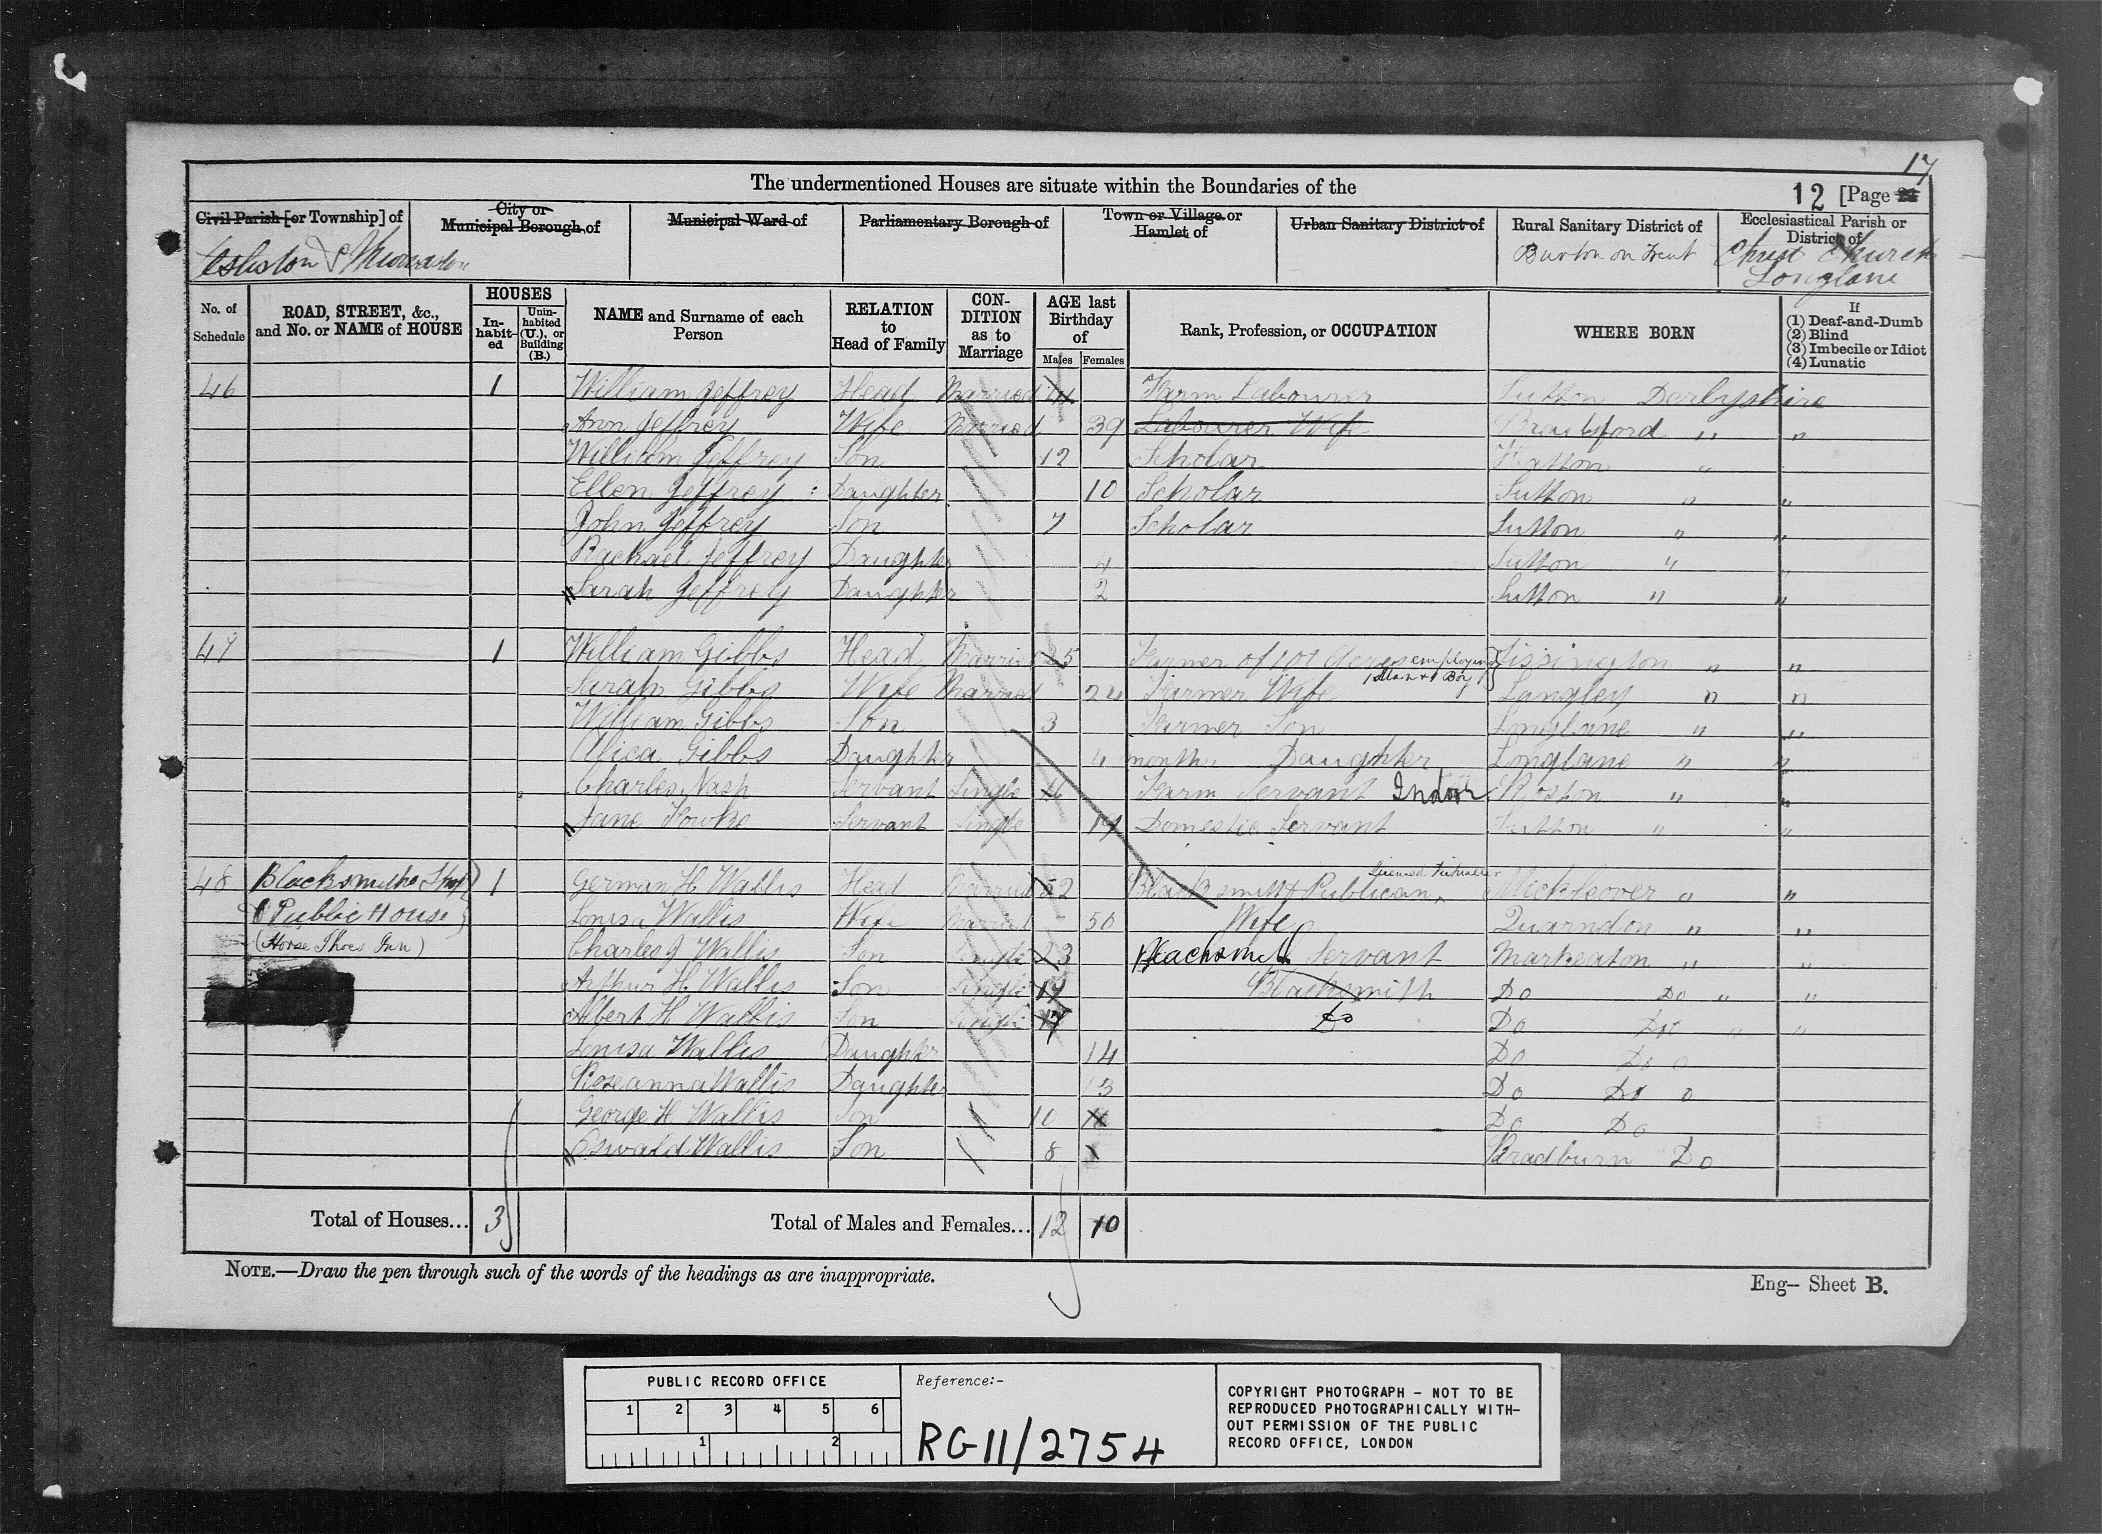 17
The undermentioned Houses are situate within the Boundaries of the
12 [Page
Civil Parish [or Township] of
City or Municipal Borough of
Municipal Ward of
Parliamentary Borough of
Town or Village or Hamlet of
Urban Sanitary District of
Rural Sanitary District of
Ecclesiastical Parish or District of
Burton on Trent
Christ Church Longlane
No. of Schedule
ROAD, STREET, &c., and No. or NAME of HOUSE
HOUSES
In-habit-ed
Unin-habited (U.), or Building (B.)
NAME and Surname of each Person
RELATION to Head of Family
CON-DITION as to Marriage
AGE last Birthday of
Males Females
Rank, Profession, or OCCUPATION
WHERE BORN
If
(1) Deaf-and-Dumb
(2) Blind
(3) Imbecile or Idiot
(4) Lunatic
46 1 William Jeffrey Head Married Farm Labourer Sutton Derbyshire
Ann Jeffrey Wife Married 39 Labourer Wife Brailsford " "
William Jeffrey Son 12 Scholar "
Ellen Jeffrey Daughter 10 Scholar Sutton " "
John Jeffrey Son 7 Scholar Sutton " "
Rachael Jeffrey Daughter 4 Sutton " "
Sarah Jeffrey Daughter 2 Sutton " "
47 1 William Gibbs Head Married 25 Farmer of 101 Acres employing Tissington " "
1 Man & 1 Boy
Sarah Gibbs Wife Married 24 Farmer Wife Langley " "
William Gibbs Son 3 Farmer Son Longlane " "
Alica Gibbs Daughter 4 months Daughter Longlane " "
Charles Nash Servant Single 16 Farm Servant Indoor " "
Jane Fowke Servant Single 17 Domestic Servant Sutton " "
48 Blacksmiths Shop 1 German H Wallis Head Married 52 Blacksmith & Publican Licensed Victualler Mickleover " "
& Public House Louisa Wallis Wife Married 50 Wife Quarndon " "
(Horse Shoes Inn) Charles J Wallis Son Single 23 Blacksmith Servant Markeaton " "
Arthur H. Wallis Son Single 19 Blacksmith Do Do " "
Albert H Wallis Son Single 17 Do Do Do " "
Louisa Wallis Daughter 14 Do Do
Roseanna Wallis Daughter 13 Do Do
George H Wallis Son 10 Do Do
Oswald Wallis Son 8 Bradburn Do
Total of Houses... 3
Total of Males and Females... 12 10
NOTE.—Draw the pen through such of the words of the headings as are inappropriate.
Eng— Sheet B.
PUBLIC RECORD OFFICE
1 2 3 4 5 6
1 2
Reference:-
RG11/2754
COPYRIGHT PHOTOGRAPH - NOT TO BE
REPRODUCED PHOTOGRAPHICALLY WITH-
OUT PERMISSION OF THE PUBLIC
RECORD OFFICE, LONDON